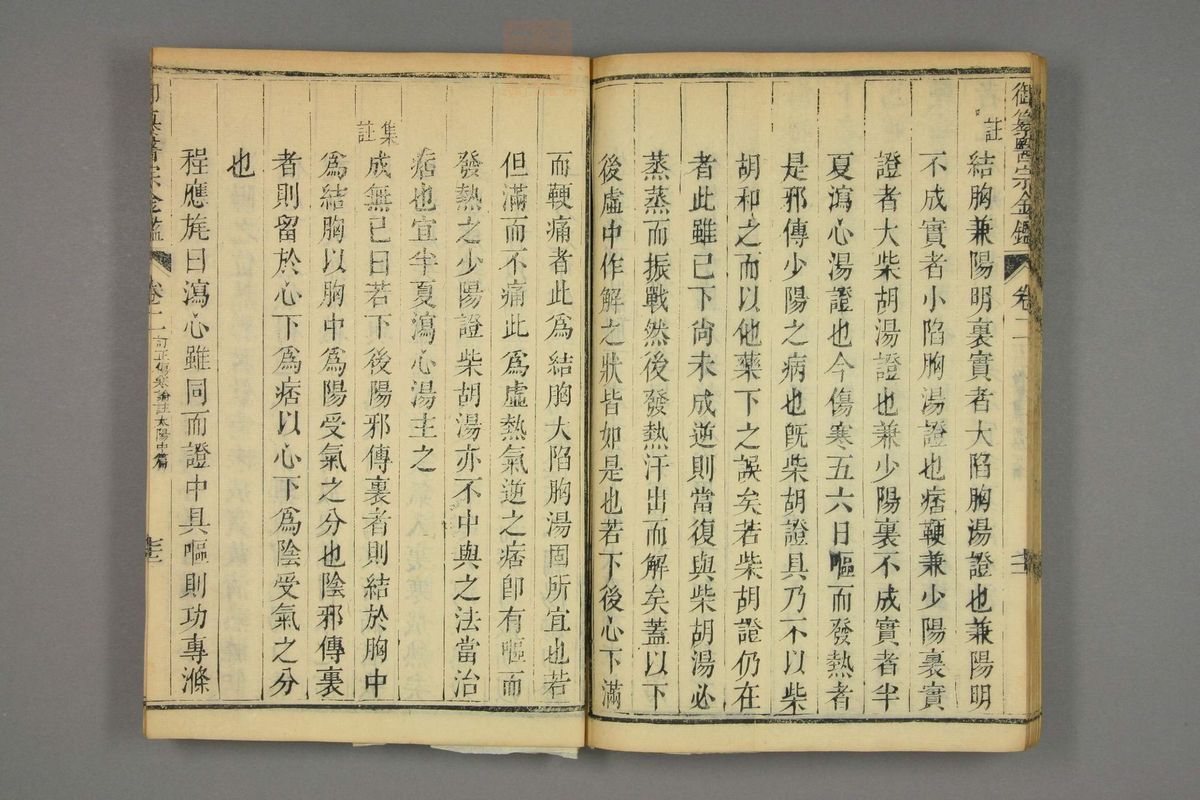 御纂醫宗金鑑
卷二
註
結胸兼陽明裏實者大陷胸湯證也兼陽明
不成實者小陷胸湯證也痞鞕兼少陽裏實
證者大柴胡湯證也兼少陽裏不成實者半
夏瀉心湯證也今傷寒五六日嘔而發熱者
是邪傳少陽之病也旣柴胡證具乃不以柴
胡和之而以他藥下之誤矣若柴胡證仍在
者此雖已下尙未成逆則當復與柴胡湯必
蒸蒸而振戰然後發熱汗出而解矣蓋以下
後虛中作解之狀皆如是也若下後心下滿
而鞕痛者此爲結胸大陷胸湯固所宜也若
但滿而不痛此爲虛熱氣逆之痞卽有嘔而
發熱之少陽證柴胡湯亦不中與之法當治
痞也宜半夏瀉心湯主之
集註
成無已曰若下後陽邪傳裏者則結於胸中
爲結胸以胸中爲陽受氣之分也陰邪傳裏
者則留於心下爲痞以心下爲陰受氣之分
也
程應旄曰瀉心雖同而證中具嘔則功專滌
御纂醫宗金鑑
卷二
訂正傷寒論註太陽中篇